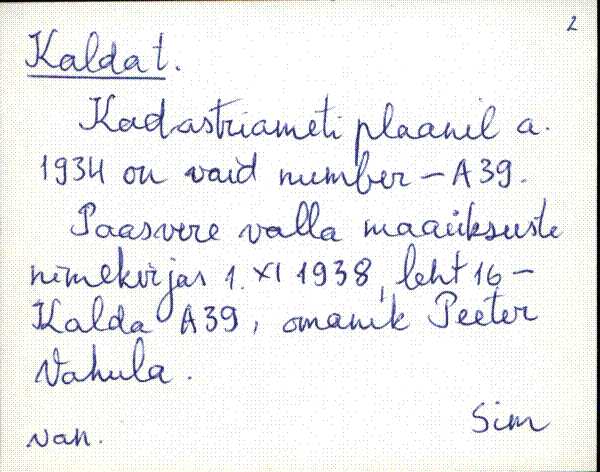 2
Kalda t.
Kadastriameti plaanil a.
1934 on vaid number - A39.
Paasvere valla maaüksuste
nimekirjas 1. XI 1938, leht 16 -
Kalda A39, omanik Peeter
Vahula.
Sim
van.